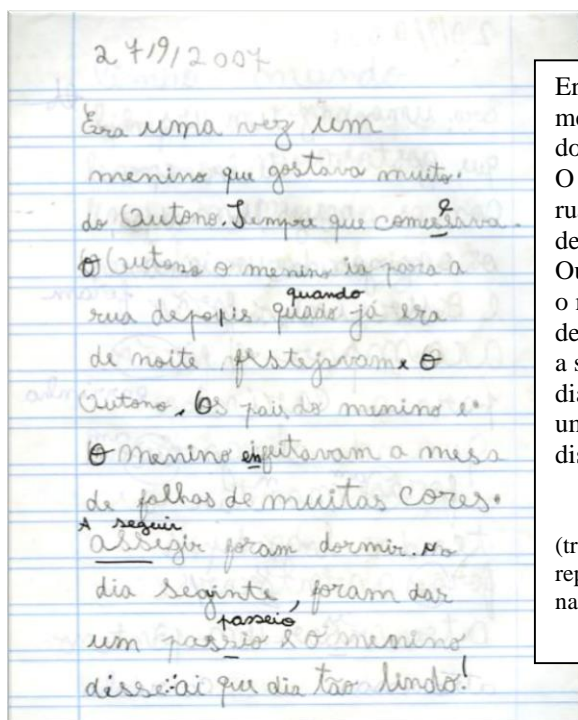 27/9/2007
Era uma vez um
menino que gostava muito.
do Outono. Sempre que comcesava.
O Outono o menino ia para a
quando
rua depopis quado já era
de noite festejvam. O
Outono. Os pais do menino e.
O menino enfeitavam a mesa
de folhas de muitas cores.
A seguir
assegir foram dormir. No
dia seginte, foram dar
passeio
um passio e o menino
disse: ai que dia tão lindo!
Er
me
do
O
ru
de
Ou
o
de
a s
dia
un
dis
(tr
rep
na